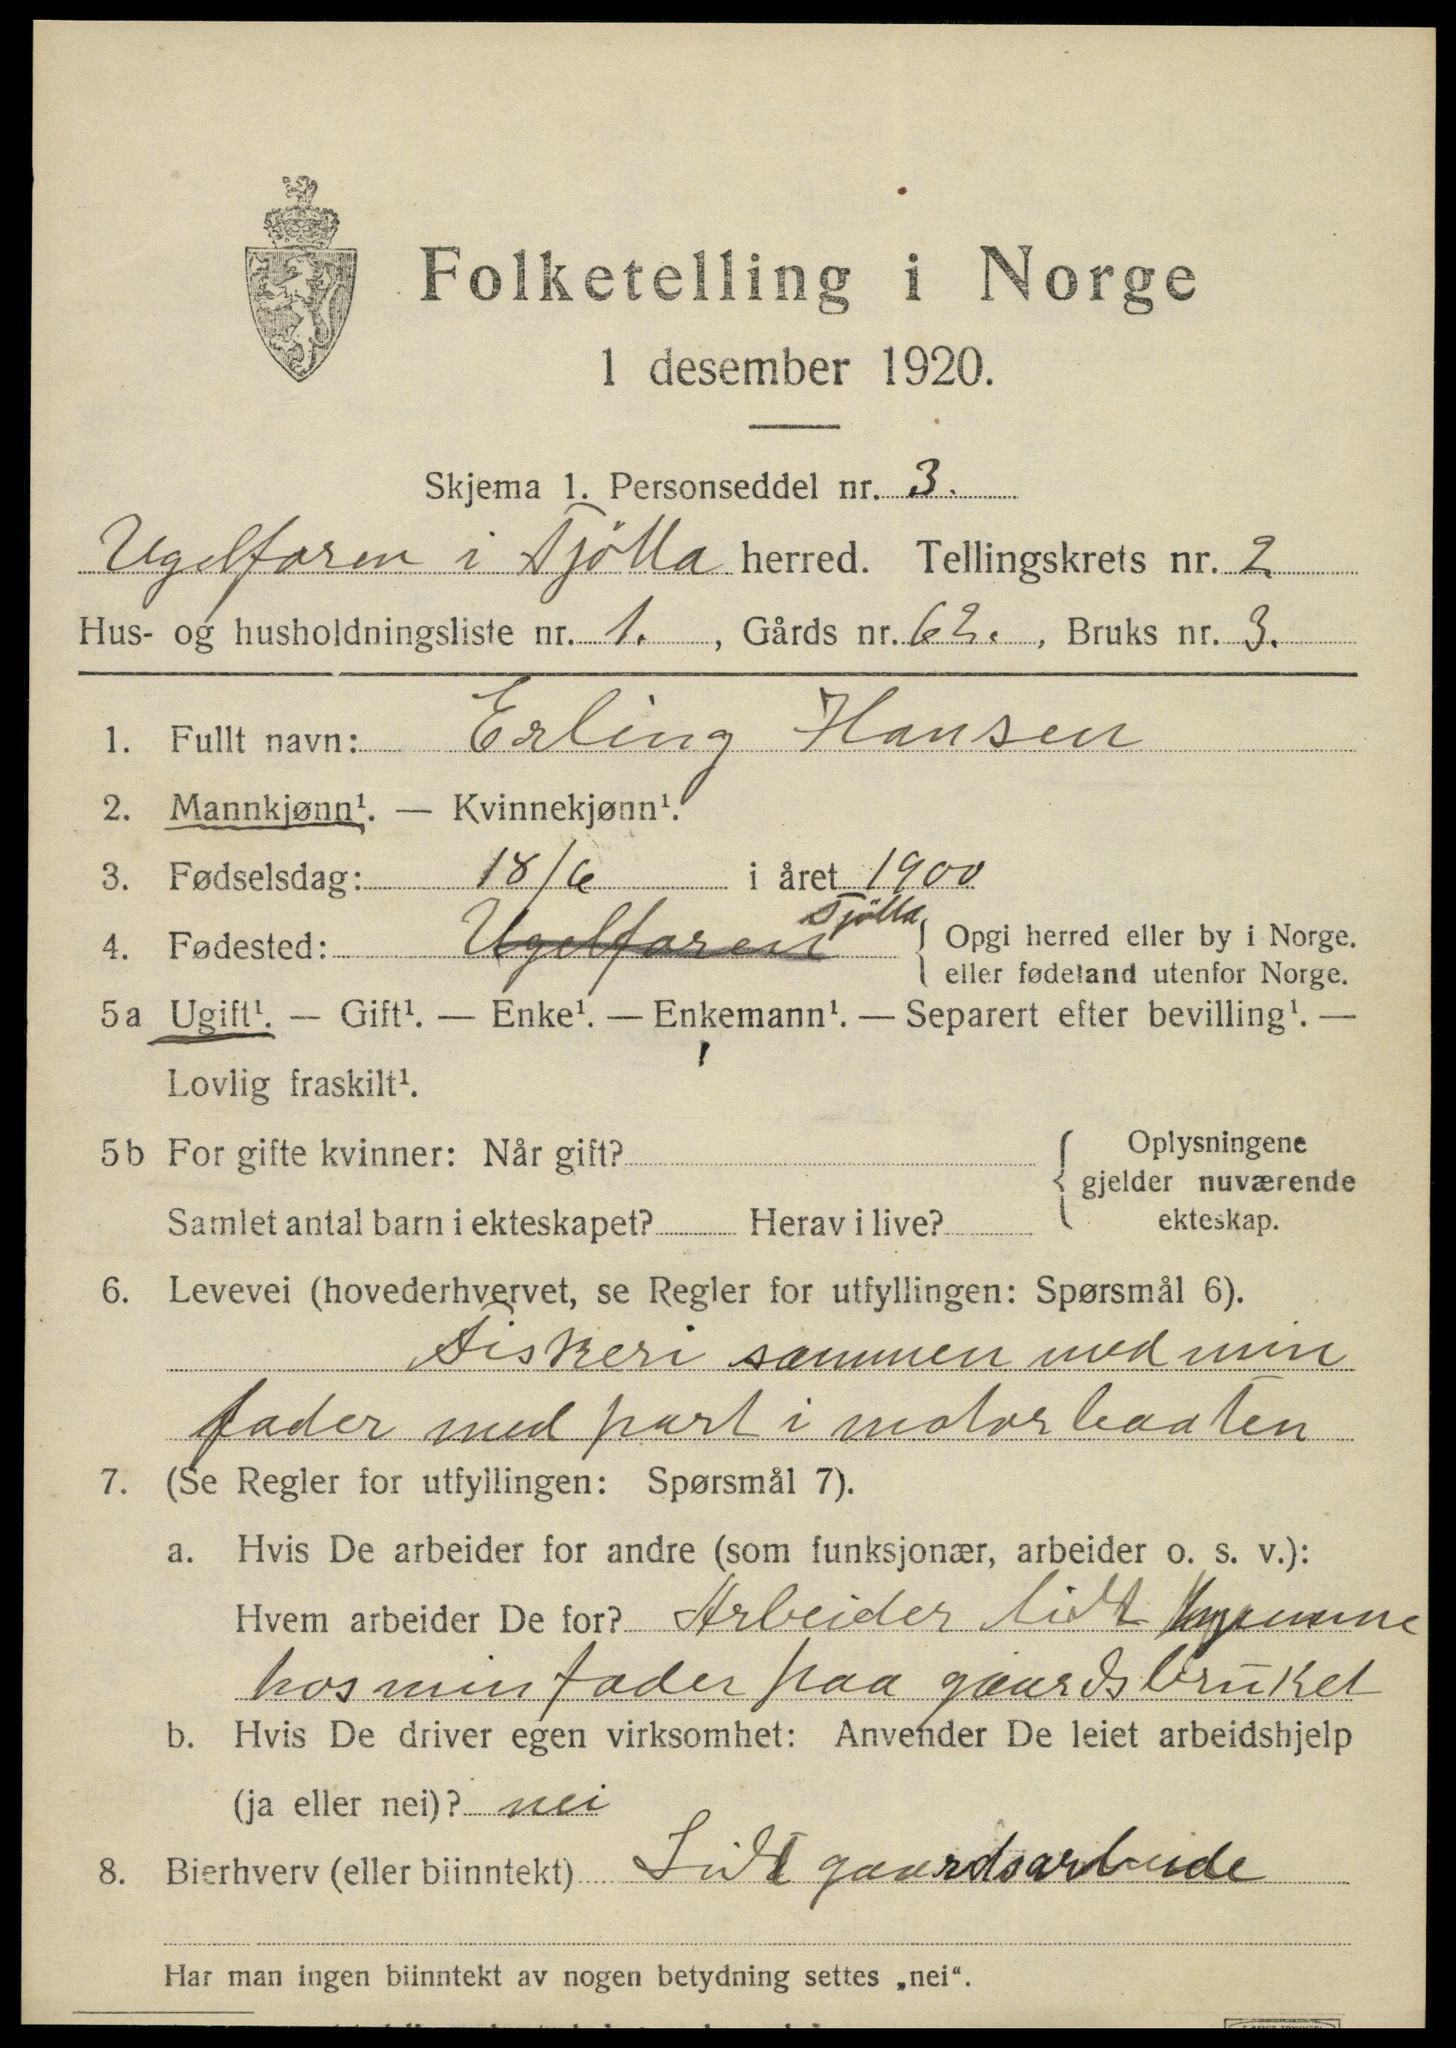 Folketelling i Norge
1 desember 1920.
Skjema 1. Personseddel nr. 3.
Ugelfaren i Tjölla herred. Tellingskrets nr. 2
Hus- og husholdningsliste nr. 1. , Gårds nr. 62. , Bruks nr. 3.
1. Fullt navn: Erling Hansen
2. Mannkjønn¹. — Kvinnekjønn¹.
3. Fødselsdag: 18/6 i året 1900
Tjölla
4. Fødested: Ugelfaren { Opgi herred eller by i Norge.
eller fødeland utenfor Norge.
5a Ugift¹. — Gift¹. — Enke¹. — Enkemann¹. — Separert efter bevilling¹. —
Lovlig fraskilt¹.
5b For gifte kvinner: Når gift? { Oplysningene
gjelder nuværende
Samlet antal barn i ekteskapet? Herav i live? ekteskap.
6. Levevei (hovederhvervet, se Regler for utfyllingen: Spørsmål 6).
Fiskeri sammen med min
fader med part i motorbaaten
7. (Se Regler for utfyllingen: Spørsmål 7).
a. Hvis De arbeider for andre (som funksjonær, arbeider o. s. v.):
Hvem arbeider De for? Arbeider lidt hjemme
hos min fader paa gaardsbruket
b. Hvis De driver egen virksomhet: Anvender De leiet arbeidshjelp
(ja eller nei)? nei
8. Bierhverv (eller biinntekt) Lidt gaardsarbeide
Har man ingen biinntekt av nogen betydning settes „nei“.